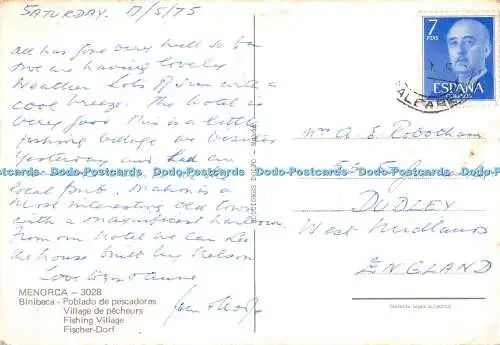 SATURDAY. 17/5/75
All has gone very well so far
We are having lovely
weather Lots of sun with a
cool breeze. The hotel is
very good This is a little
fishing village we visited
yesterday and had an
local drink. Mahon is a
most interesting old town
with a magnificent harbour
From our hotel we can see
the house built by Nelson
Love to you
MENORCA – 3028
Binibeca - Poblado de pescadores
Village de pêcheurs
Fishing Village
Fischer-Dorf
7
PTAS
ESPAÑA
CORREOS
Mrs A. E. Robotham
DUDLEY
West Midlands
ENGLAND
Dodo-Postcards Dodo-Postcards Dodo-Postcards Dodo-Postcards